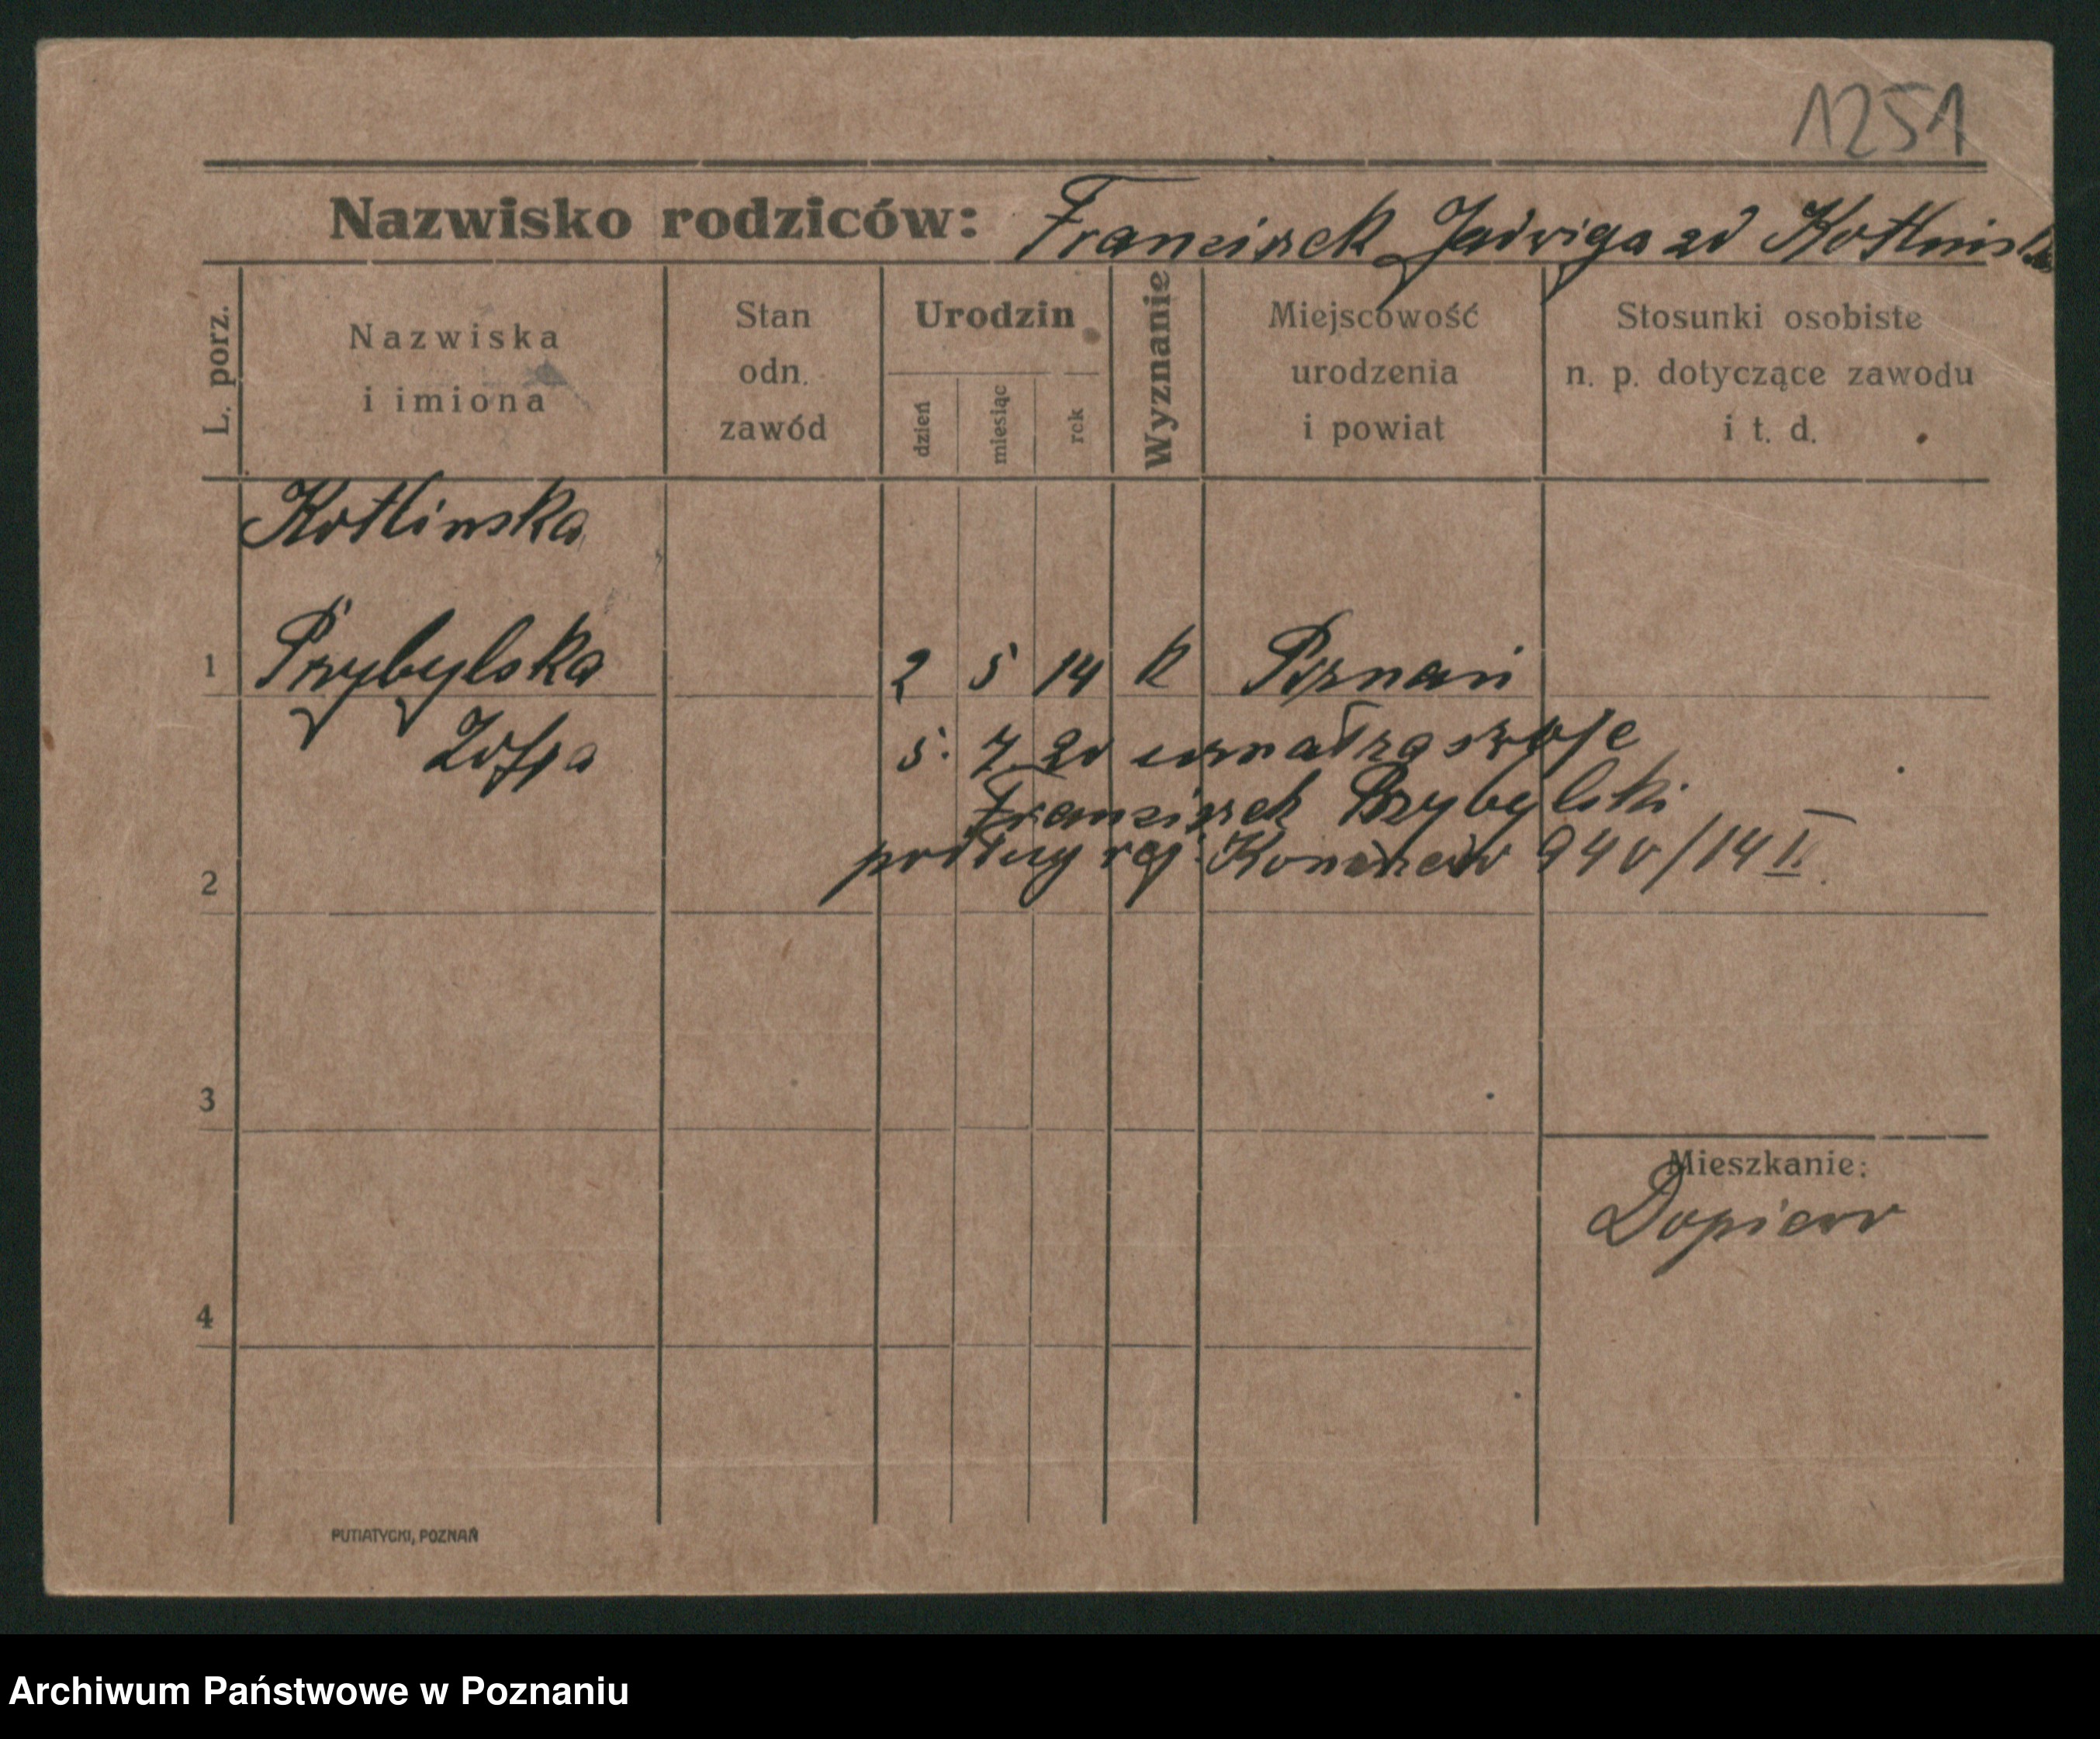 1251
Nazwisko rodziców: Franciszek Jadwiga zd Kotlinska
L. porz.
Nazwiska
i imiona
Stan
odn.
zawód
Urodzin
dzień
miesiąc
rok
Wyznanie
Miejscowość
urodzenia
i powiat
Stosunki osobiste
n. p. dotyczące zawodu
i t. d.
Kotlinska
1 Przybylska 2 5 14 k Poznań
Zofja 5. 7. 20 uznał za swoje
Franciszek Przybylski
podług rej. 940/14 II.
2
3
Mieszkanie:
Dopiero
4
PUTIATYCKI, POZNAŃ
Archiwum Państwowe w Poznaniu